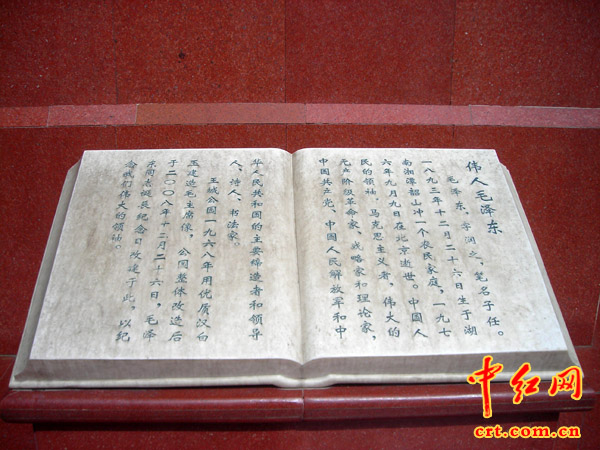 伟人毛泽东
毛泽东，字润之，笔名子任。
一八九三年十二月二十六日生于湖
南湘潭韶山冲一个农民家庭，一九七
六年九月九日在北京逝世。中国人
民的领袖，马克思主义者，伟大的
无产阶级革命家，战略家和理论家，
中国共产党、中国人民解放军和中
华人民共和国的主要缔造者和领导
人，诗人、书法家。
王城公园一九六八年用优质汉白
玉建造毛主席像，公园整体改造后
于二〇〇八年十二月二十六日，毛泽
东同志诞辰纪念日改建于此，以纪
念我们伟大的领袖。
中红网
crt.com.cn